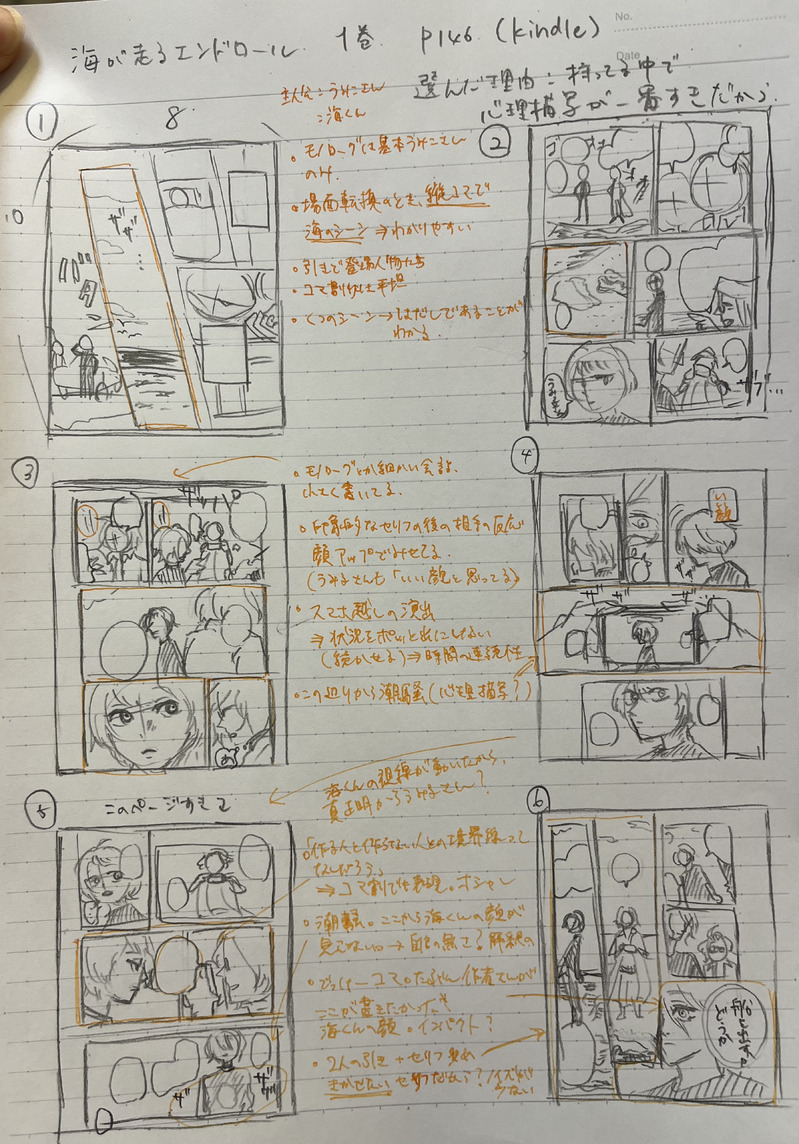 No.
Date
海が走るエンドロール 1巻 P146 (kindle)
選んだ理由：持ってる中で
心理描写が一番すきだから
主人公：うみこさん
：海くん
①
8
10
・モノローグは基本うみこさん
のみ
・場面転換のとき、縦コマで
海のシーン⇒わかりやすい
・引きで登場人物たち
・コマ割りは平坦
・くつのシーン→はだしであることが
わかる
ザザ
…
②
うみこさん
ザザ…
③
・モノローグとか細かい会話、
小さく書いてる
・印象的なセリフの後の相手の反応
顔アップでみせてる
(うみこさんも「いい顔」と思ってる)
・スマホ越しの演出
⇒状況をポッと出にしない
(続かせる)⇒時間の連続性
・この辺りから潮騒(心理描写？)
④
いい顔
ザザ
海くんの視線が動いたから、
⑤
このページすきて
・「作る人と作らない人との境界線って
なんだろう」
⇒コマ割で表現。オシャレ
・潮騒。ここから海くんの顔が
見えない。
・でっけーコマ。たぶん作者さんが
ここが書きたかった
海くんの顔。インパクト？
・2人の引き＋セリフ
きかせたいセリフだから？ノイズが
少ない
ザザ
⑥